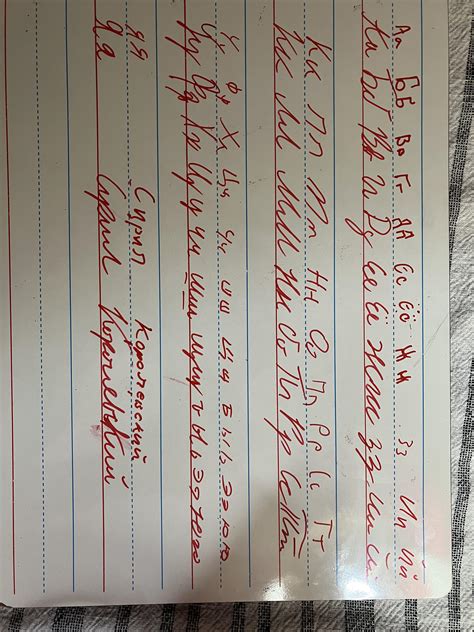 Аа Бб Вв Гг Дд Ее Ёё Жж Зз Ии Йй
Аа Бб Вв Гг Дд Ее Ёё Жж Зз Ии Йй
Кк Лл Мм Нн Оо Пп Рр Сс Тт
Кк Лл Мм Нн Оо Пп Рр Сс Тт
Уу Фф Хх Цц Чч Шш Щщ Ъ Ы Ь Ээ Юю
Уу Фф Хх Цц Чч Шш Щщ ъ ы ь Ээ Юю
Яя
Яя
Сирил Королевский
Сирил Королевский